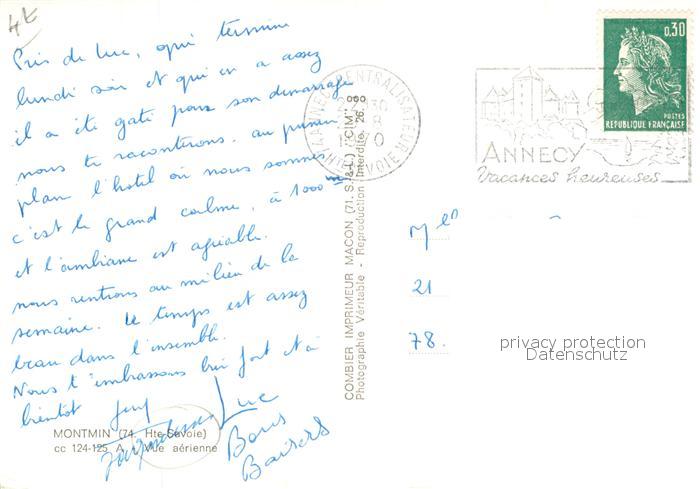 4€
Pris de Luc, qui termine
lundi soir et qui en a assez
il a été gaté pour son démarrage
nous te raconterons. au premier
plan l'hotel où nous sommes
c'est le grand calme, à 1000 m
et l'ambiance est agréable.
nous rentrons au milieu de la
semaine. Le temps est assez
beau dans l'ensemble.
Nous t'embrassons bien fort et à
bientôt
Luc
Bons
Baisers
MONTMIN (74, Hte-Savoie)
cc 124-125 A - Vue aérienne
COMBIER IMPRIMEUR MACON (71, S.&L.) "CIM"
Photographie Véritable - Reproduction Interdite
ANNECY CENTRALISATEUR
HTE SAVOIE
ANNECY
Vacances heureuses
0,30
POSTES
REPUBLIQUE FRANÇAISE
Melle
21
78.
privacy protection
Datenschutz